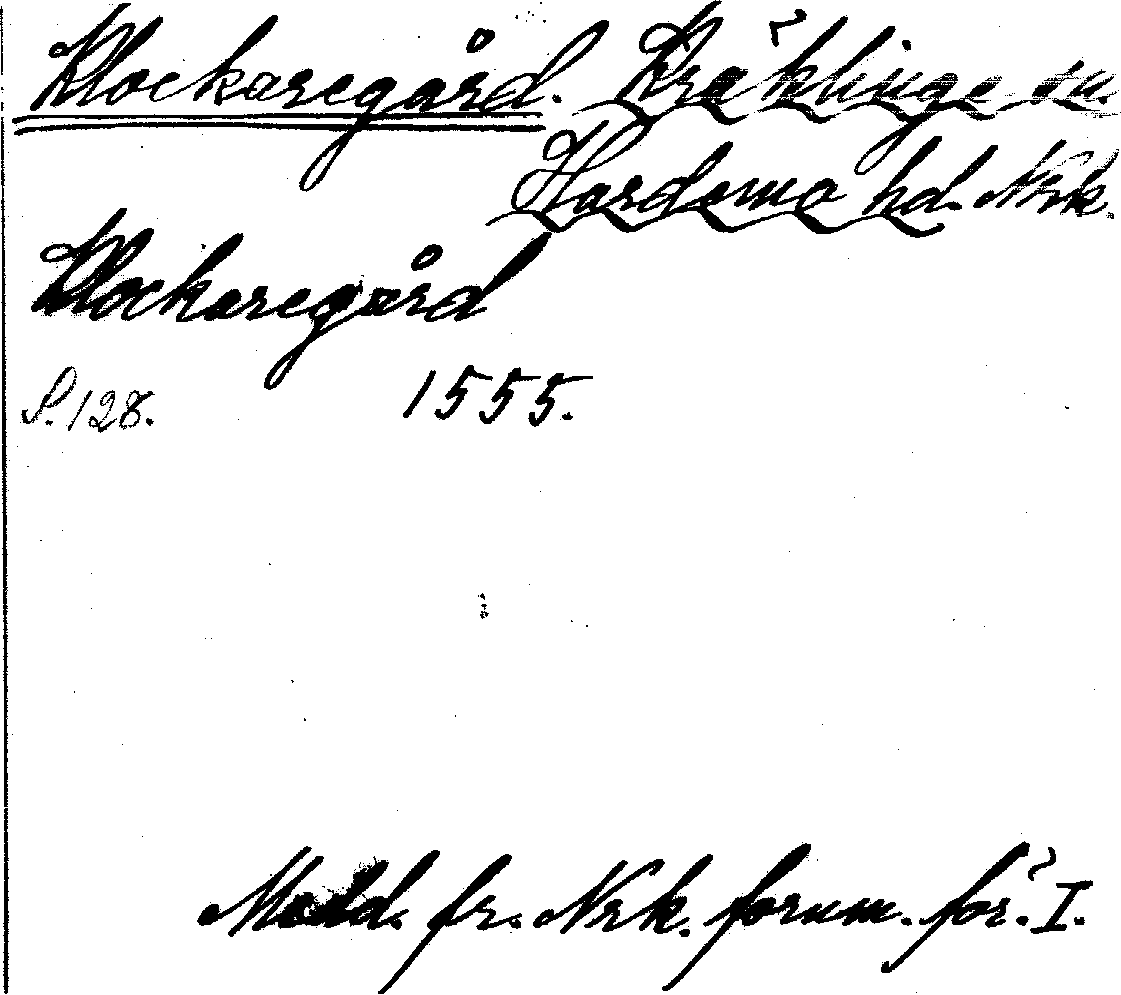 Klockaregård. Kräklinge sn.
Hardemo hd. Nrk.
Klockaregård
S. 128. 1555.
Medd. fr. Nrk. fornm. för. I.